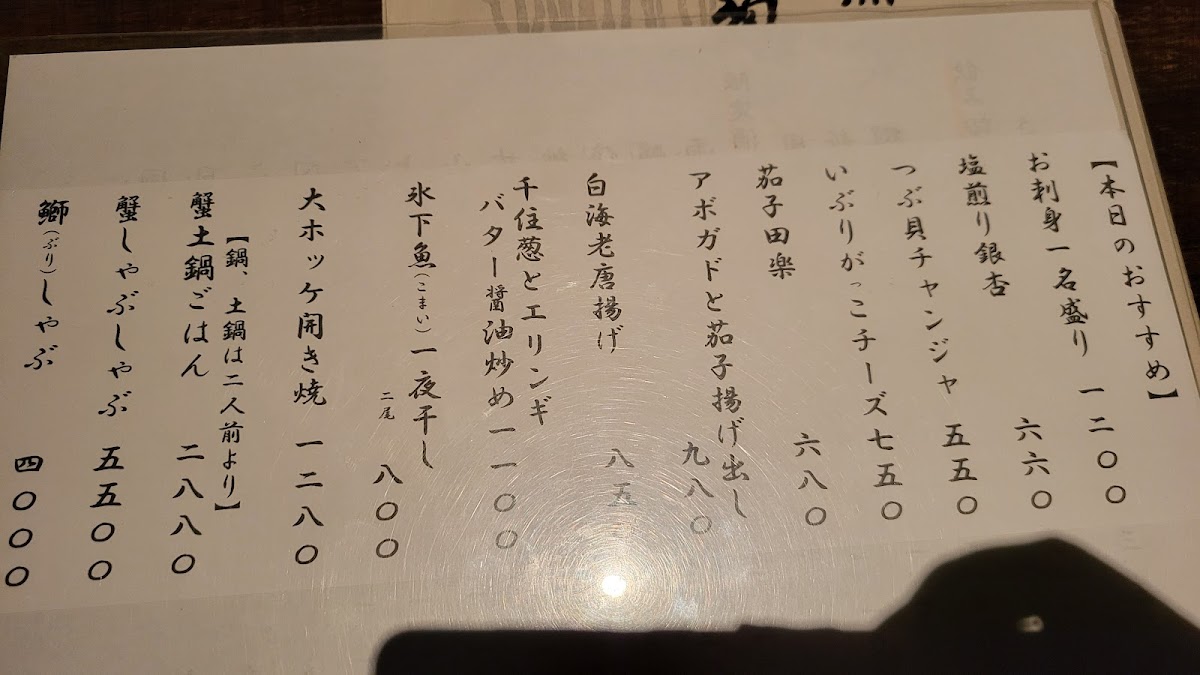 【本日のおすすめ】
お刺身一名盛り 一二〇〇
塩煎り銀杏 六六〇
つぶ貝チャンジャ 五五〇
いぶりがっこチーズ 七五〇
茄子田楽 六八〇
アボガドと茄子揚げ出し
九八〇
白海老唐揚げ 八五
千住葱とエリンギ
バター醤油炒め 一一〇〇
氷下魚(こまい)一夜干し
二尾 八〇〇
大ホッケ開き焼 一二八〇
【鍋、土鍋は二人前より】
蟹土鍋ごはん 二八八〇
蟹しゃぶしゃぶ 五五〇〇
鰤(ぶり)しゃぶ 四〇〇〇